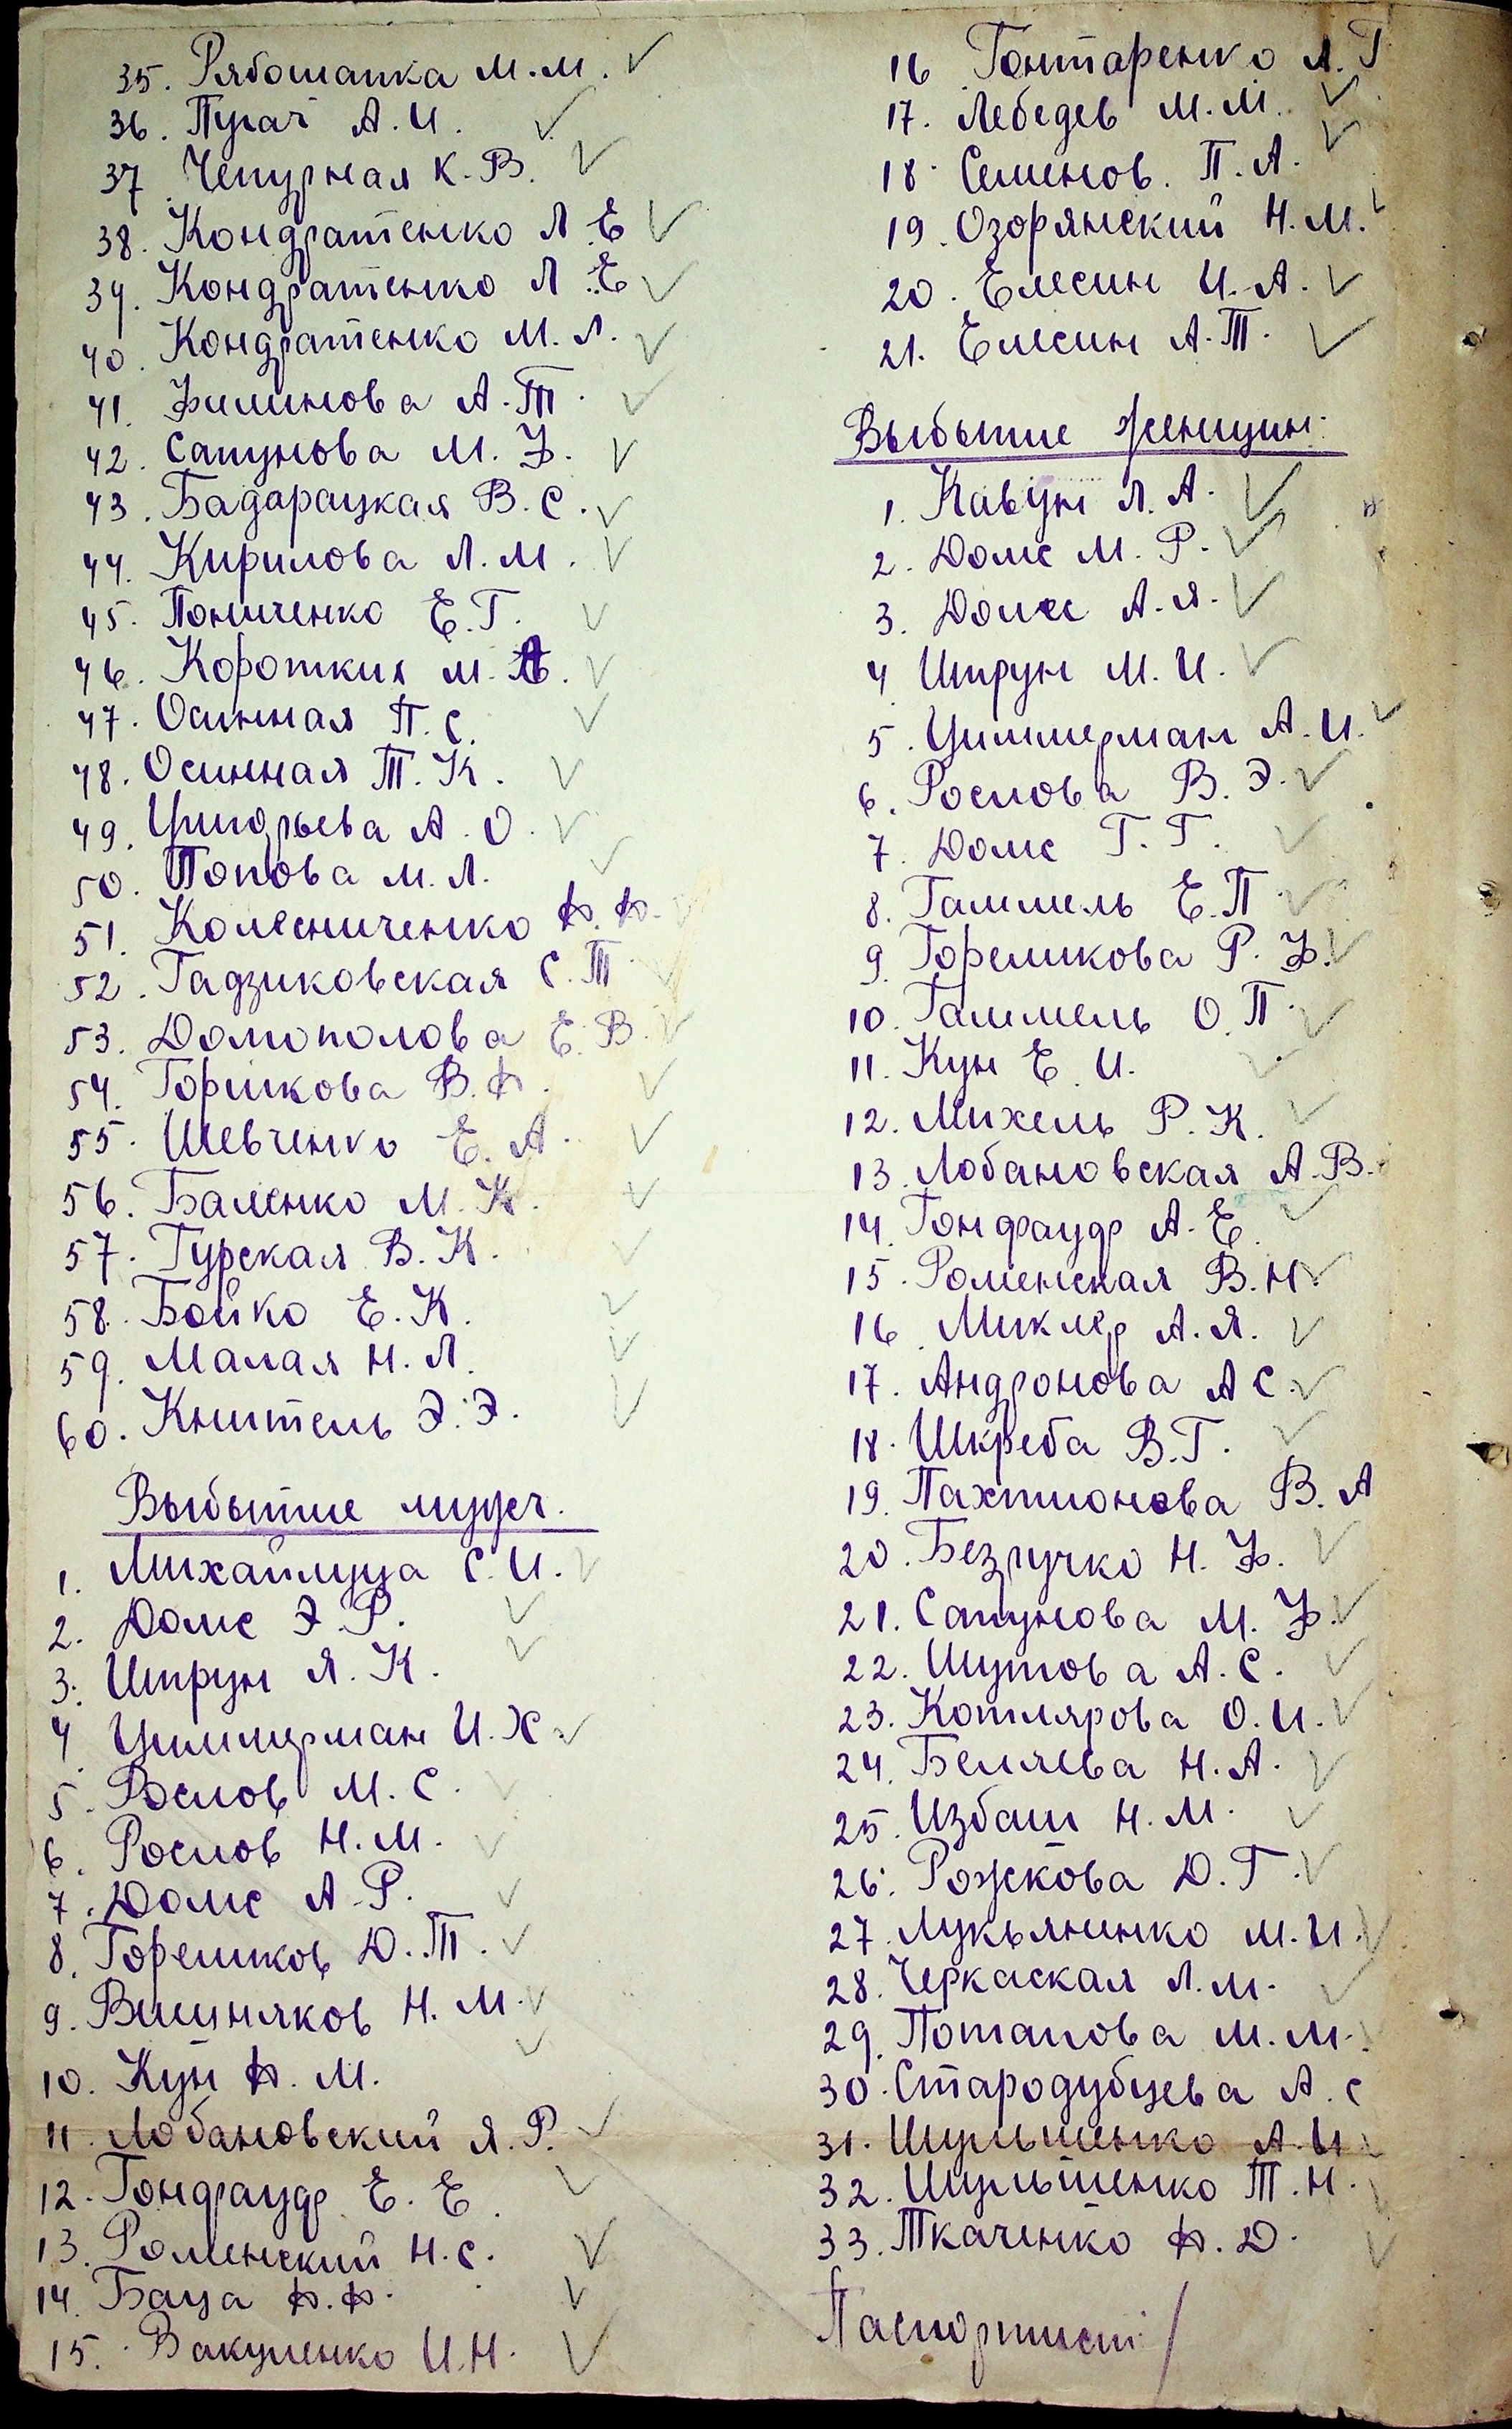 35. Рябошапка М.М.
36. Пугач А.И.
37. Чепурная К.В.
38. Кондратенко Л.Е
39. Кондратенко Л.Е
40. Кондратенко М.Л.
41. Филинова А.Т.
42. Сапунова М.Ф.
43. Бадарацкая В.С.
44. Кирилова Л.М.
45. Пониченко Е.Г.
46. Коротких М.
47. Осинная П.С.
48. Осинная Т.К.
49. Григорьева А.О.
50. Попова М.Л.
51. Колесниченко Ф.Ф.
52. Гадзиковская С.Т.
53. Домополова Е.В.
54. Горшкова В.Ф.
55. Шевченко Е.А.
56. Баленко М.К.
57. Гурская В.К.
58. Бойко Е.К.
59. Малая Н.Л.
60. Книтель Э.Э.
Выбытие мужч.
1. Михайлуца С.И.
2. Домс Э.Р.
3. Штрун Я.К.
4 Циммерман И.Х.
5. Рослов М.С.
6. Рослов Н.М.
7. Домс А.Р.
8. Гореликов Д.Т.
9. Вишняков Н.М.
10. Кун Ф.М.
11. Лобановский Я.Р.
12. Гондраудр Е.Е.
13. Роменский Н.С.
14. Баца Ф.Ф.
15. Вакуленко И.Н.
16 Гонтаренко А.Г
17. Лебедев М.М.
18. Семенов. П.А.
19. Озорянский Н.М.
20. Елесин И.А.
21. Елесин А.Т.
Выбытие женщин.
1. Кавун Л.А.
2. Домс М.Р.
3. Домс А.Я.
4 Штрун М.И.
5. Циммерман А.И.
6. Рослова В.Э.
7. Домс Г.Г.
8. Гаммель Е.П.
9. Гореликова Р.Ф.
10. Гаммель О.П.
11. Кун Е.И.
12. Михель Р.К.
13. Лобановская А.В.
14. Гондраудр А.Е.
15. Роменская В.Н
16. Миклер А.Я.
17. Андронова А С.
18. Шкреба В.Г.
19. Пахтионова В.А
20. Безручко Н.Ф.
21. Сапунова М.Ф.
22. Шутова А.С.
23. Котлярова О.И.
24. Беляева Н.А.
25. Избаш Н.М.
26. Рожкова Д.Г.
27. Лукьяненко М.И.
28. Черкаская Л.М.
29. Потапова М.М.
30. Стародубцева А.С
31. Шульшенко А.И
32. Шульшенко Т.Н.
33. Ткаченко Ф.Д.
Паспортист /